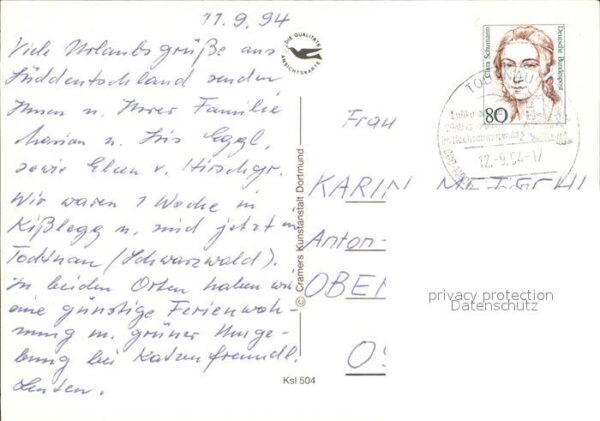 11.9.94
Viele Urlaubsgrüße aus
Süddeutschland senden
Ihnen u. Ihrer Familie
Marion u. Iris Eggl,
sowie Ellen v. Hirschgr.
Wir waren 1 Woche in
Kißlegg u. sind jetzt in
Todtnau (Schwarzwald).
In beiden Orten haben wir
eine günstige Ferienwoh-
nung m. grüner Umge-
bung bei Katzenfreundl.
Leuten.
DIE QUALITÄTS
ANSICHTSKARTE
© Cramers Kunstanstalt Dortmund
Ksl 504
Clara Schumann
Deutsche Bundespost
80
TODTNAU
12.-9.94-17
Frau
KARIN
Anton-
OBE
O
privacy protection
Datenschutz